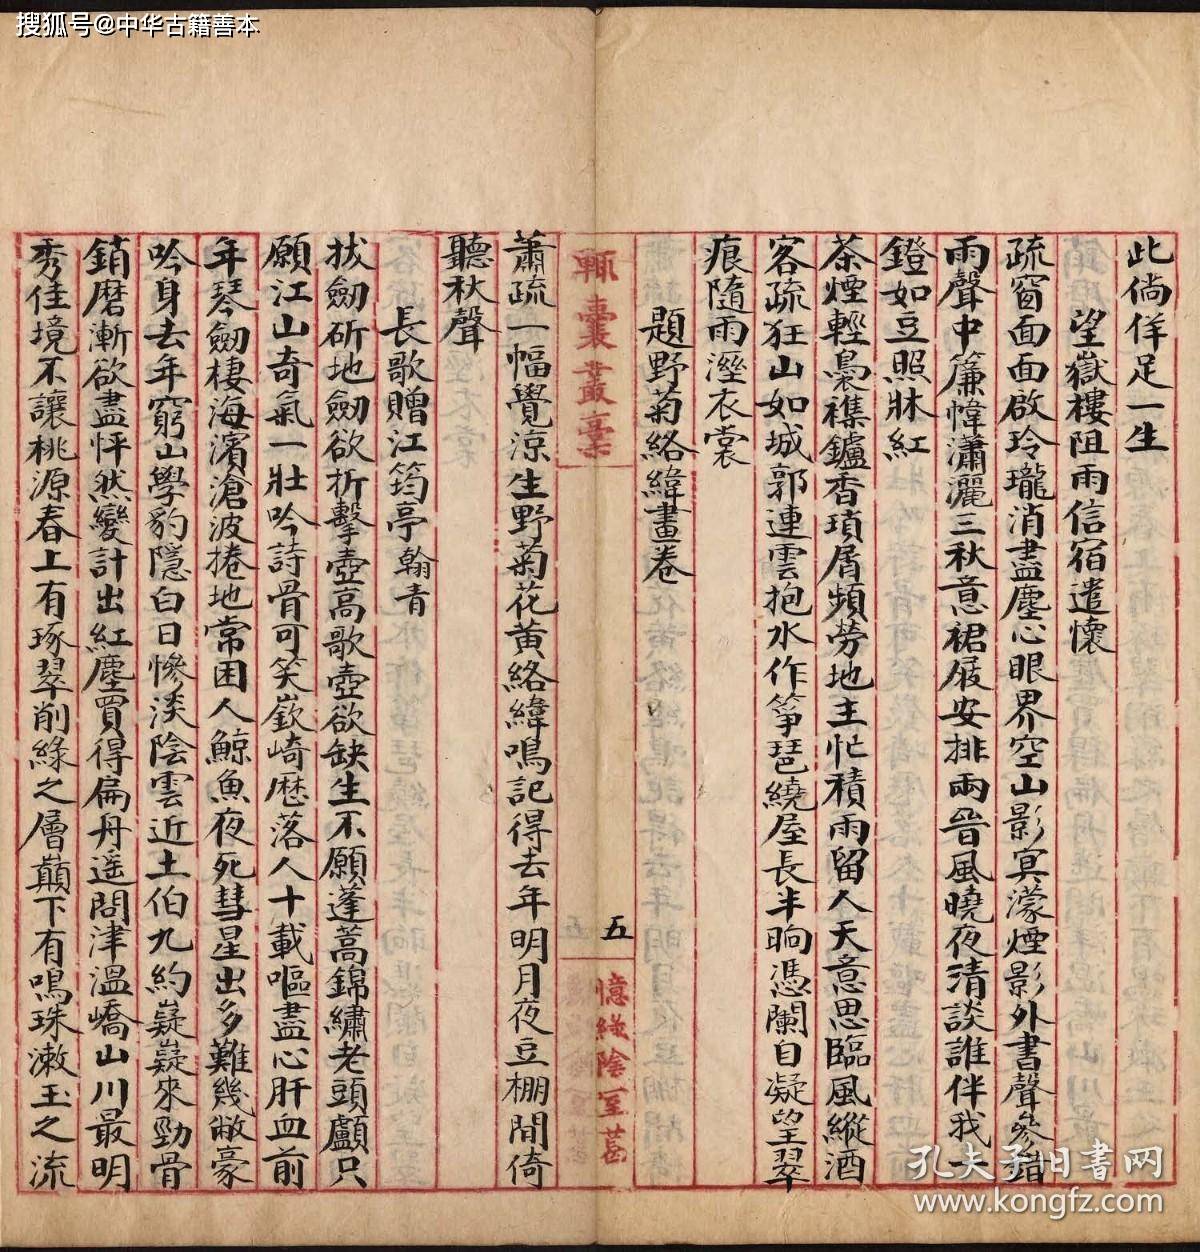 搜狐号@中华古籍善本
此倘佯足一生
望嶽樓阻雨信宿遣懷
疏窗面面啟玲瓏消盡塵心眼界空山影冥濛煙影外書聲參錯
雨聲中簾幃瀟灑三秋意裙屐安排兩晉風曉夜清談誰伴我一
鐙如豆照牀紅
茶煙輕裊襍鑪香瑣屑頻勞地主忙積雨留人天意思臨風縱酒
客疏狂山如城郭連雲抱水作箏琶繞屋長半晌憑闌自凝望翠
痕隨雨溼衣裳
題野菊絡緯畫卷
輞囊叢稾
五
憶綠陰室著
蕭疏一幅覺涼生野菊花黃絡緯鳴記得去年明月夜豆棚閒倚
聽秋聲
長歌贈江筠亭翰青
拔劒斫地劒欲折擊壺高歌壺欲缺生不願蓬蒿錦繡老頭顱只
願江山奇氣一壯吟詩骨可笑嶔崎歷落人十載嘔盡心肝血前
年琴劒棲海濱滄波捲地常困人鯨魚夜死彗星出多難幾敝豪
吟身去年窮山學豹隱白日慘淡陰雲近土伯九約嶷嶷來勁骨
銷磨漸欲盡怦然變計出紅塵買得扁舟遥問津溫嶠山川最明
秀佳境不讓桃源春上有琢翠削綠之層巔下有鳴珠漱玉之流
孔夫子旧书网
www.kongfz.com